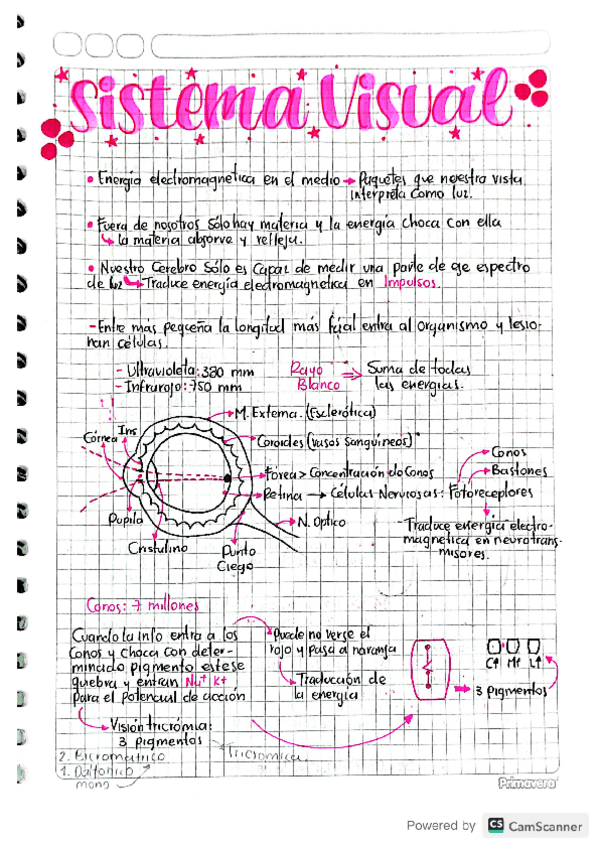 Sistema Visual
• Energía electromagnetica en el medio → Paquetes que nuestra vista
interpreta como luz.
• Fuera de nosotros sólo hay materia y la energía choca con ella
↳ la materia absorve y refleja.
• Nuestro Cerebro sólo es capaz de medir una parte de ese espectro
de luz ↳ Traduce energía electromagnetica en Impulsos.
- Entre más pequeña la longitud más fácil entra al organismo y lesio-
nan células.
- Ultravioleta: 380 mm
- Infrarojo: 750 mm
Rayo
Blanco
⇒ Suma de todas
las energias.
M. Externa. (Esclerótica)
Iris
Córnea
Coroides (vasos sanguíneos)
Conos
Bastones
Fovea > Concentración de Conos
Retina → Células Nerviosas: Fotoreceptores
Pupila
N. Optico
Traduce energía electro-
magnetica en neurotrans-
misores.
Cristalino
Punto
Ciego
Conos: 7 millones
Cuando la info entra a los
conos y choca con deter-
minado pigmento este se
quebra y entran Na+ K+
Para el Potencial de acción
Puede no verse el
rojo y pasa a naranja
↳ Traducción de
la energia
C↑ M↑ L↑
3 pigmentos
↳ Visión tricromia:
3 pigmentos
Tricromica
2. Bicromatico
1. Daltonico
mono
Primavera
Powered by CS CamScanner